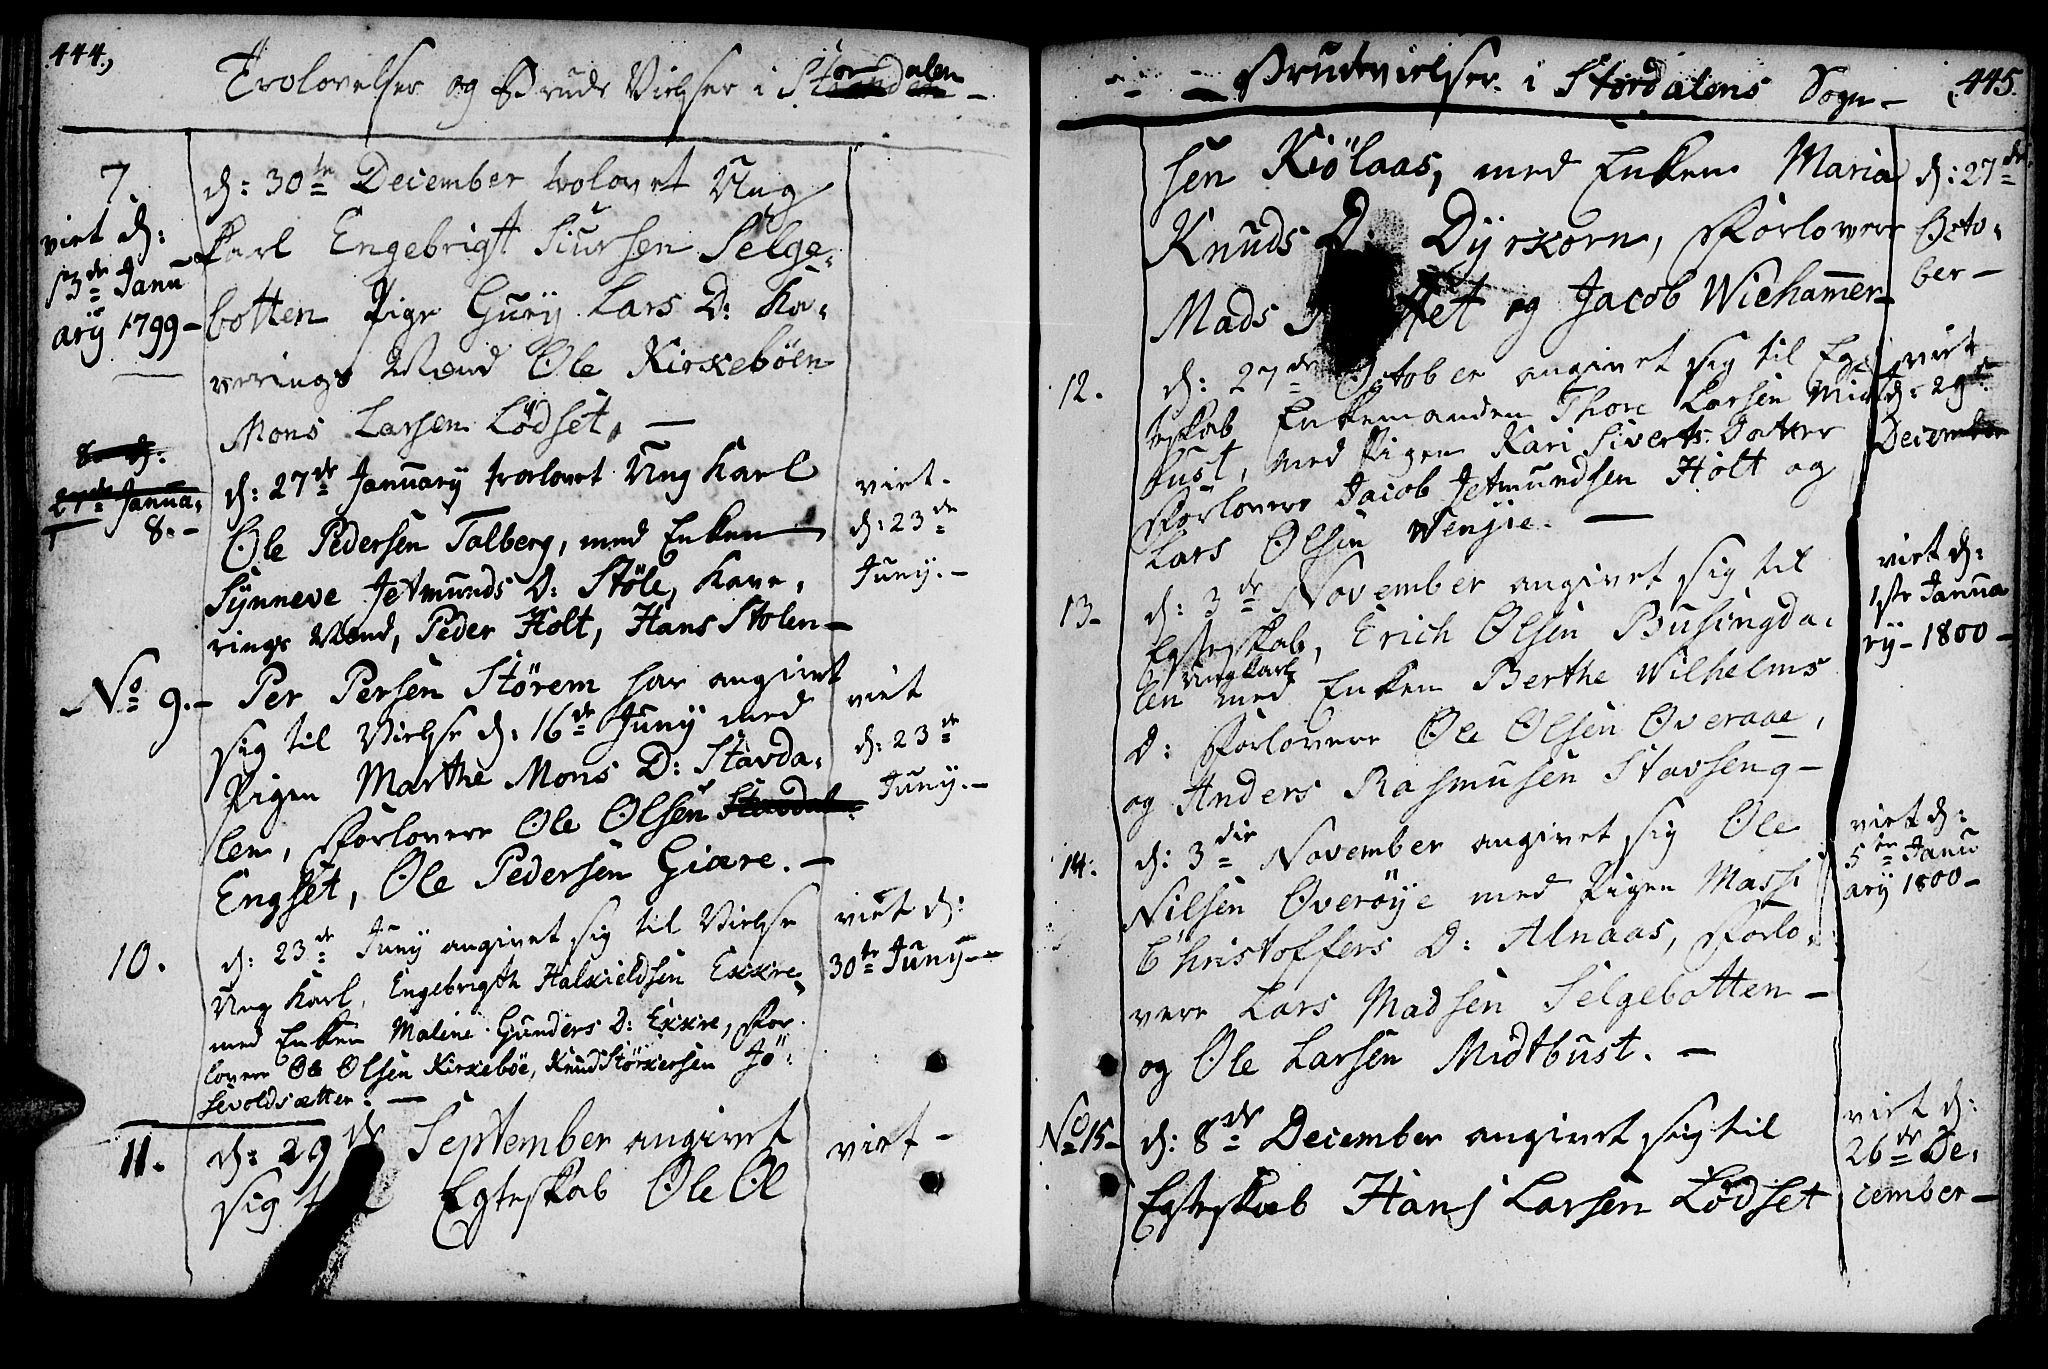 444,
Trolovelser og Brude Vielser i Stordalen
7.
viet d:
13de Janu
ary 1799 -
d: 30te December trolovet Ung
Karl Engebrigt Siursen Selge-
botten Pige Gury Lars D: Ka-
verings Mænd Ole Kirkebøen
Mons Larsen Lödset, -
8 d:
27de Janua,
8. -
d: 27de January trolovet Ung Karl
Ole Pedersen Talberg, med Enken
Synneve Jetmunds D: Stöle, Kave,
rings Mænd, Peder Holt, Hans Stolen -
viet.
d: 23de
Juny. -
No 9. -
Per Persen Störem har angivet
sig til Vielse d: 16de Juny med
Pigen Marthe Mons D: Stavda,
len, Forlovere Ole Olsen Stavdal
Engset, Ole Pedersen Giære. -
viet
d: 23de
Juny. -
10.
d: 23de Juny angivet sig til Vielse
Ung Karl, Engebrigth Halkieldsen Exkre,
med Enken Maline Gunders D: Exkre, For
lovere Ole Olsen Kirkeböe, Knud Störkersen Jö-
sevoldsætter. -
viet d:
30te Juny -
11.
d: 29de September angivet
sig til Egteskab Ole Ol
viet -
Brudevielser i Stordalens Sogn - 445.
sen Kiölaas, med Enken Maria
Knuds D: Dyrkorn, Forlovere
Mads og Jacob Wiehamer
d: 27de
Octo-
ber -
12.
d: 27de October angivet sig til Eg-
teskab Enkemanden Thore Larsen Mid
bust, med Pigen Kari Siverts Datter
Forlovere Jacob Jetmundsen Holt og
Lars Olsen Wenjie. -
viet
d: 29de
December
13 -
d: 3de November angivet sig til
Egteskab, Erich Olsen Busingda-
Ungkarl
len med Enken Berthe Wilhelms
D: Forlovere Ole Olsen Overaae,
og Anders Rasmusen Stavseng -
viet d:
1ste Janua
ry - 1800 -
14.
d: 3die November angivet sig Ole
Nilsen Overöye med Pigen Massi
Christoffers D: Alnaas, Forlo-
vere Lars Madsen Selgebotten -
og Ole Larsen Midtbust. -
viet d:
5te Janu
ary 1800 -
No 15 -
d: 8de December angivet sig til
Egteskab Hans Larsen Lödset
viet d:
26de De,
cember -